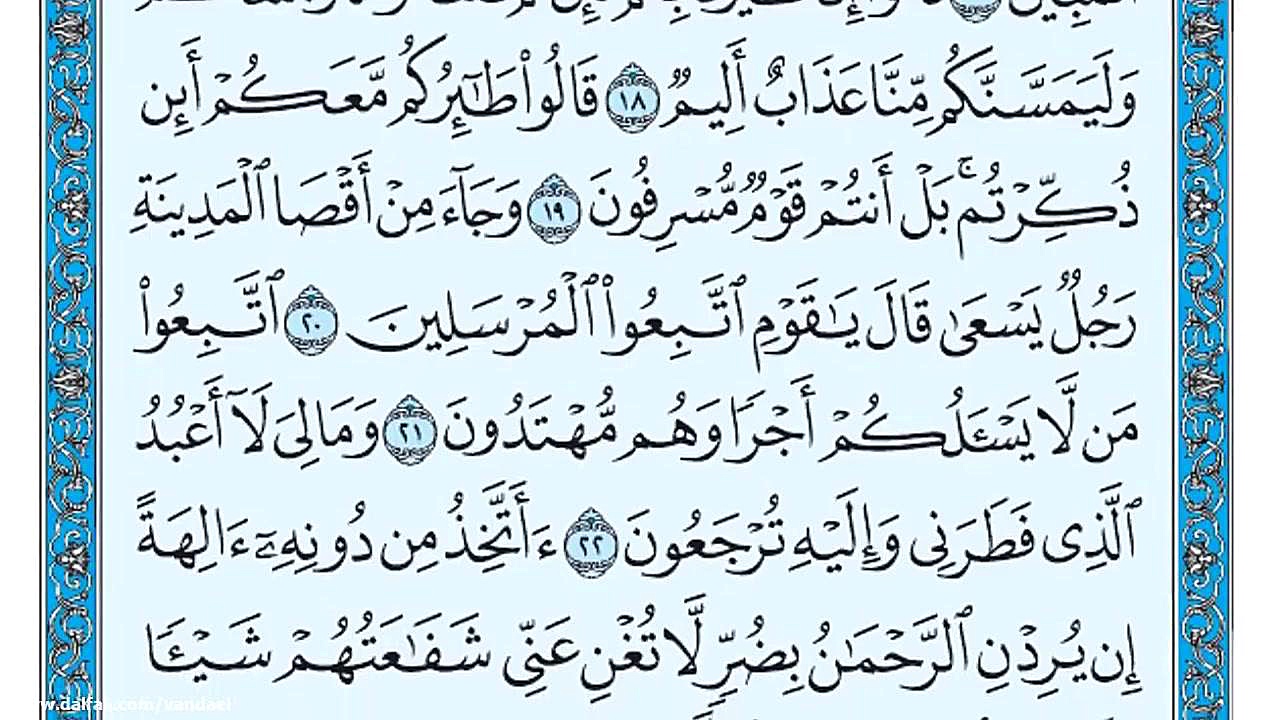 وَلَيَمَسَّنَّكُم مِّنَّا عَذَابٌ أَلِيمٌ ١٨ قَالُوا۟ طَـٰٓئِرُكُم مَّعَكُمْ أَئِن
ذُكِّرْتُم ۚ بَلْ أَنتُمْ قَوْمٌ مُّسْرِفُونَ ١٩ وَجَآءَ مِنْ أَقْصَا ٱلْمَدِينَةِ
رَجُلٌ يَسْعَىٰ قَالَ يَـٰقَوْمِ ٱتَّبِعُوا۟ ٱلْمُرْسَلِينَ ٢٠ ٱتَّبِعُوا۟
مَن لَّا يَسْـَٔلُكُمْ أَجْرًا وَهُم مُّهْتَدُونَ ٢١ وَمَا لِىَ لَآ أَعْبُدُ
ٱلَّذِى فَطَرَنِى وَإِلَيْهِ تُرْجَعُونَ ٢٢ ءَأَتَّخِذُ مِن دُونِهِۦٓ ءَالِهَةً
إِن يُرِدْنِ ٱلرَّحْمَـٰنُ بِضُرٍّ لَّا تُغْنِ عَنِّى شَفَـٰعَتُهُمْ شَيْـًٔا